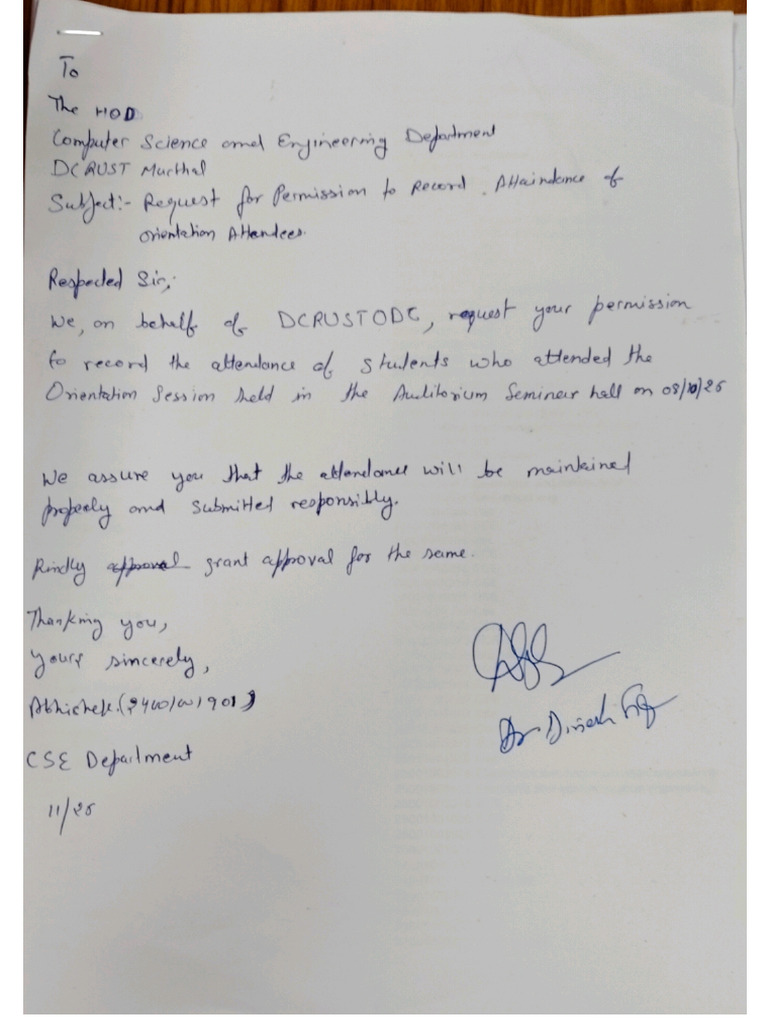 To
The HOD
Computer Science and Engineering Department
DCRUST Murthal
Subject:- Request for Permission to Record Attaindance of
Orientation Attendees.
Respected Sir,
We, on behalf of DCRUSTODC, request your permission
to record the attendance of students who attended the
Orientation Session held in the Auditorium Seminar hall on 08/10/25
We assure you that the attendance will be maintained
properly and submitted responsibly.
Kindly approval grant approval for the same.
Thanking you,
Yours sincerely,
Abhishek
CSE Department
11/25
Dr Dinesh